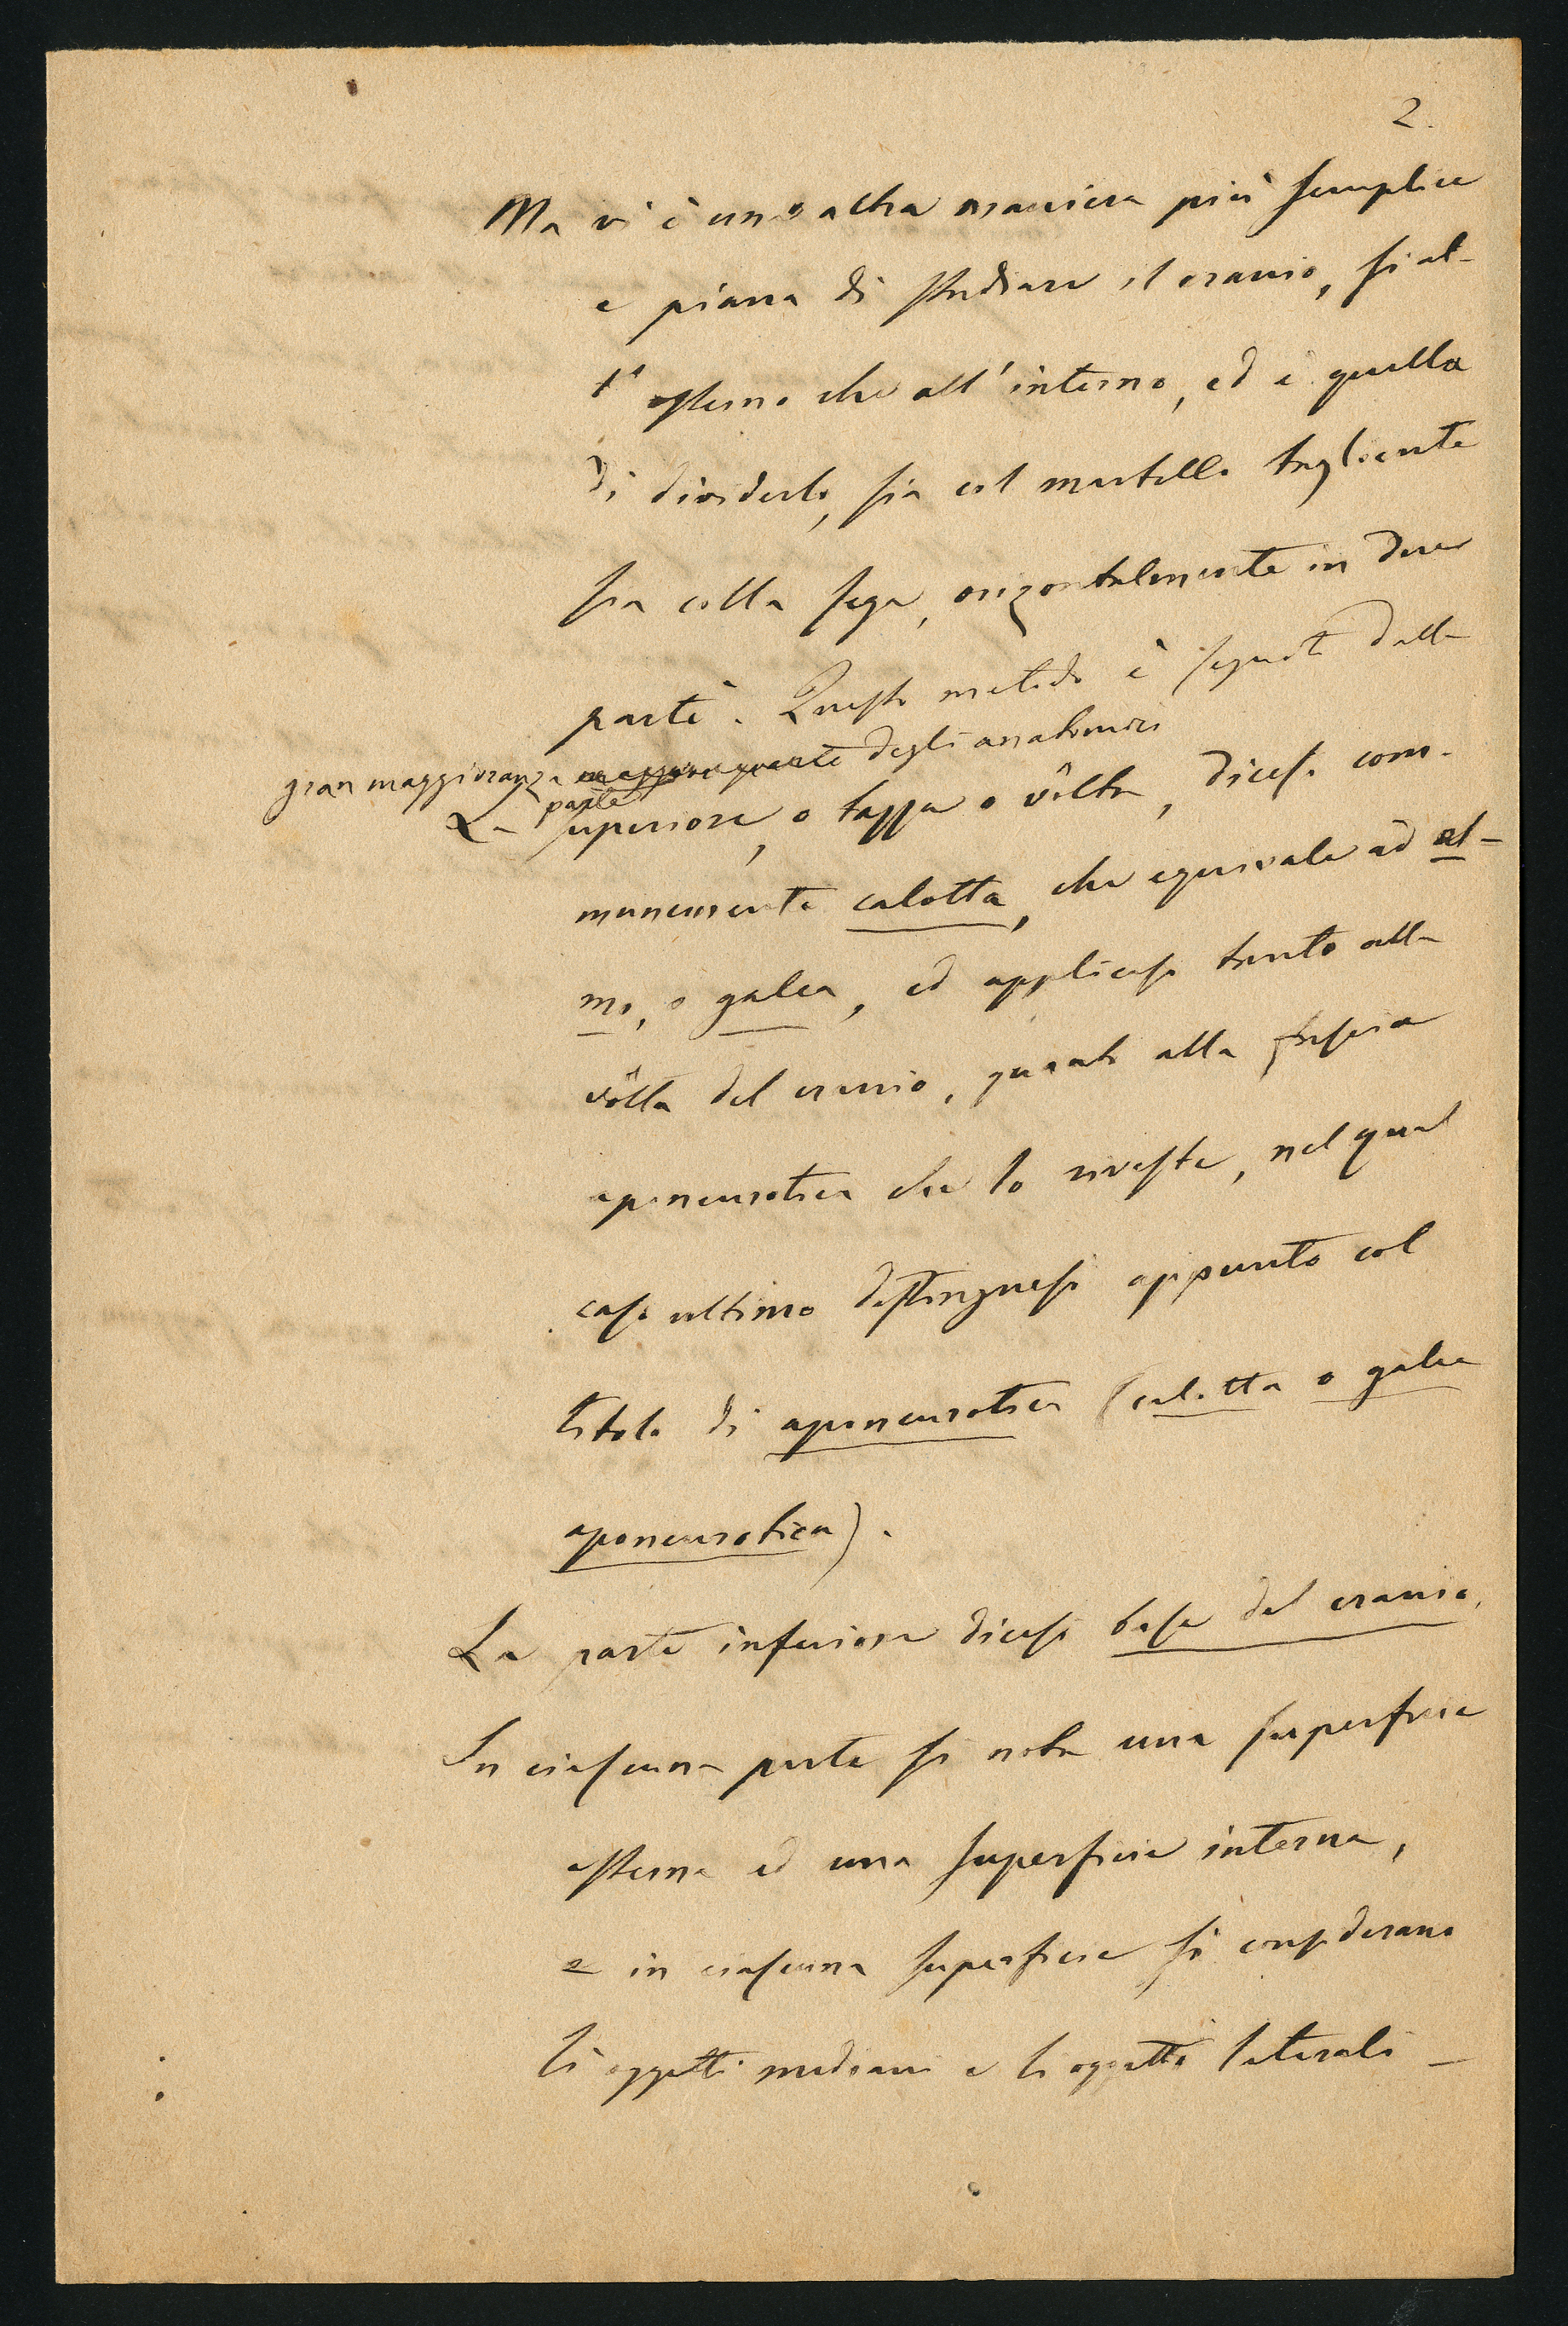 2.
Ma vi è un'altra maniera più semplice
e piana di studiare il cranio, sì al-
l'esterno che all'interno, ed è quella
di dividerlo, sia col martello tagliente
sia colla sega, orizontalmente in due
parti. Questo metodo è seguito dalla
gran maggioranza degli anatomici
La parte superiore, o tappa o vôlta, dicesi com-
munemente calotta, che equivale ad el-
mo, o galea, ed applicasi tanto alla
vôlta del cranio, quanto alla
aponeurotica che lo riveste, nel qual
caso ultimo distinguesi appunto col
titolo di aponeurotica (calotta o galea
aponeurotica).
La parte inferiore dicesi base del cranio.
In ciascuna parte si nota una superficie
esterna ed una superficie interna,
e in ciascuna superficie si considerano
li oggetti mediani e li oggetti laterali -